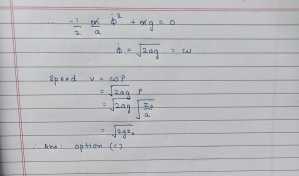 ∴ -1/2 m/a Φ̇² + mg = 0
Φ̇ = √2ag = ω
Speed v = ωρ
= √2ag ρ
= √2ag √(z₀/a)
= √2gz₀
∴ Ans: option (c)